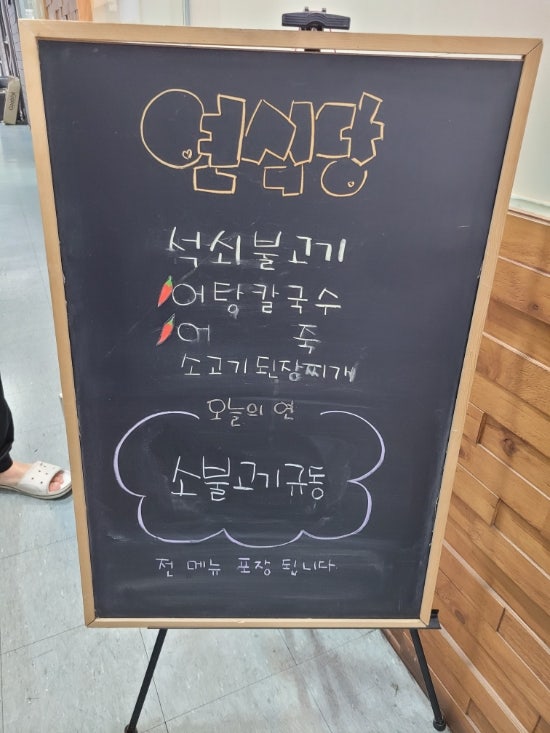 연식당
석쇠불고기
어탕칼국수
어 죽
소고기된장찌개
오늘의 연
소불고기규동
전 메뉴 포장 됩니다.